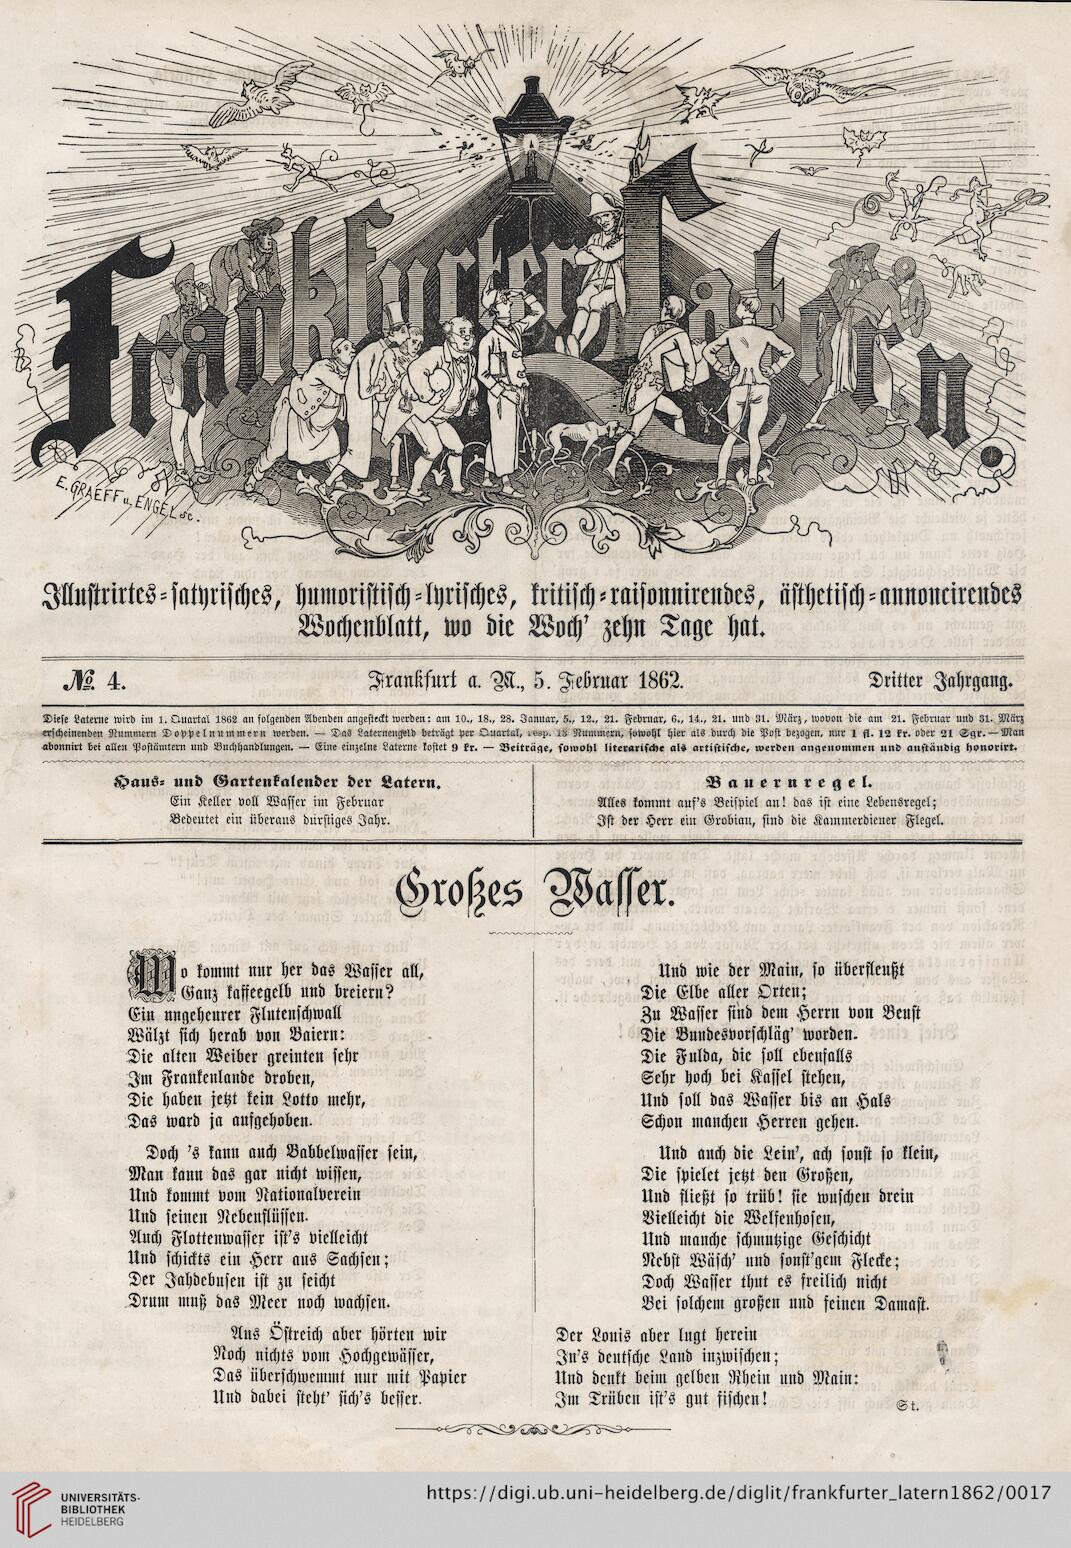 Frankfurter Latern
E. GRAEFF u. ENGEL sc.
Illustrirtes-satyrisches, humoristisch-lyrisches, kritisch-raisonnirendes, ästhetisch-annoncirendes
Wochenblatt, wo die Woch' zehn Tage hat.
No. 4.
Frankfurt a. M., 5. Februar 1862.
Dritter Jahrgang.
Diese Laterne wird im 1. Quartal 1862 an folgenden Abenden angesteckt werden: am 10., 18., 28. Januar, 5., 12., 21. Februar, 6., 14., 21. und 31. März, wovon die am 21. Februar und 31. März
erscheinenden Nummern Doppelnummern werden. — Das Laternengeld beträgt per Quartal, resp. 13 Nummern, sowohl hier als durch die Post bezogen, nur 1 fl. 12 kr. oder 21 Sgr. — Man
abonnirt bei allen Postämtern und Buchhandlungen. — Eine einzelne Laterne kostet 9 kr. — Beiträge, sowohl literarische als artistische, werden angenommen und anständig honorirt.
Haus- und Gartenkalender der Latern.
Ein Keller voll Wasser im Februar
Bedeutet ein überaus durstiges Jahr.
Bauernregel.
Alles kommt auf's Beispiel an! das ist eine Lebensregel;
Ist der Herr ein Grobian, sind die Kammerdiener Flegel.
Großes Wasser.
Wo kommt nur her das Wasser all,
Ganz kaffeegelb und breiern?
Ein ungeheurer Flutenschwall
Wälzt sich herab von Baiern:
Die alten Weiber greinten sehr
Im Frankenlande droben,
Die haben jetzt kein Lotto mehr,
Das ward ja aufgehoben.
Doch 's kann auch Babbelwasser sein,
Man kann das gar nicht wissen,
Und kommt vom Nationalverein
Und seinen Nebenflüssen.
Auch Flottenwasser ist's vielleicht
Und schickts ein Herr aus Sachsen;
Der Jahdebusen ist zu seicht
Drum muß das Meer noch wachsen.
Aus Östreich aber hörten wir
Noch nichts vom Hochgewässer,
Das überschwemmt nur mit Papier
Und dabei steht' sich's besser.
Und wie der Main, so überfleußt
Die Elbe aller Orten;
Zu Wasser sind dem Herrn von Beust
Die Bundesvorschläg' worden.
Die Fulda, die soll ebenfalls
Sehr hoch bei Kassel stehen,
Und soll das Wasser bis an Hals
Schon manchen Herren gehen.
Und auch die Lein', ach sonst so klein,
Die spielet jetzt den Großen,
Und fließt so trüb! sie wuschen drein
Vielleicht die Welfenhosen,
Und manche schmutzige Geschicht
Nebst Wäsch' und sonst'gem Flecke;
Doch Wasser thut es freilich nicht
Bei solchem großen und feinen Damast.
Der Louis aber lugt herein
In's deutsche Land inzwischen;
Und denkt beim gelben Rhein und Main:
Im Trüben ist's gut fischen!
St.
UNIVERSITÄTS-
BIBLIOTHEK
HEIDELBERG
https://digi.ub.uni-heidelberg.de/diglit/frankfurter_latern1862/0017